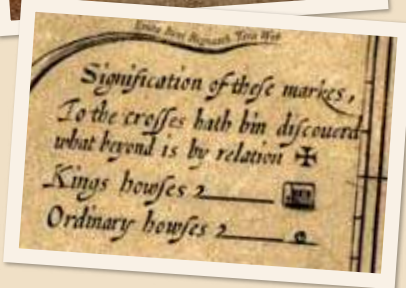 Signification of theſe markes,
To the croſſes hath bin diſcouerd
what beyond is by relation ✠
Kings howſes
Ordinary howſes